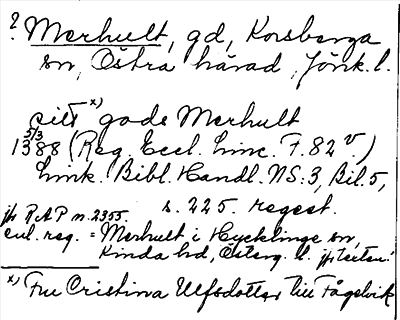 ? Merhult, gd, Korsberga
sn, Östra härad, Jönk. l.
sitt x) gods Merhult
5/3
1388 (Reg. Eccl. Linc. F. 82 v)
Link. Bibl. Handl. NS: 3, Bil. 5,
s. 225. regest.
jfr RAP n. 2355.
enl. reg. = Merhult i Hycklinge sn,
Kinda hd, Österg. l. jfr texten!
x) Fru Cristina Ulfsdotter till Fågelvik